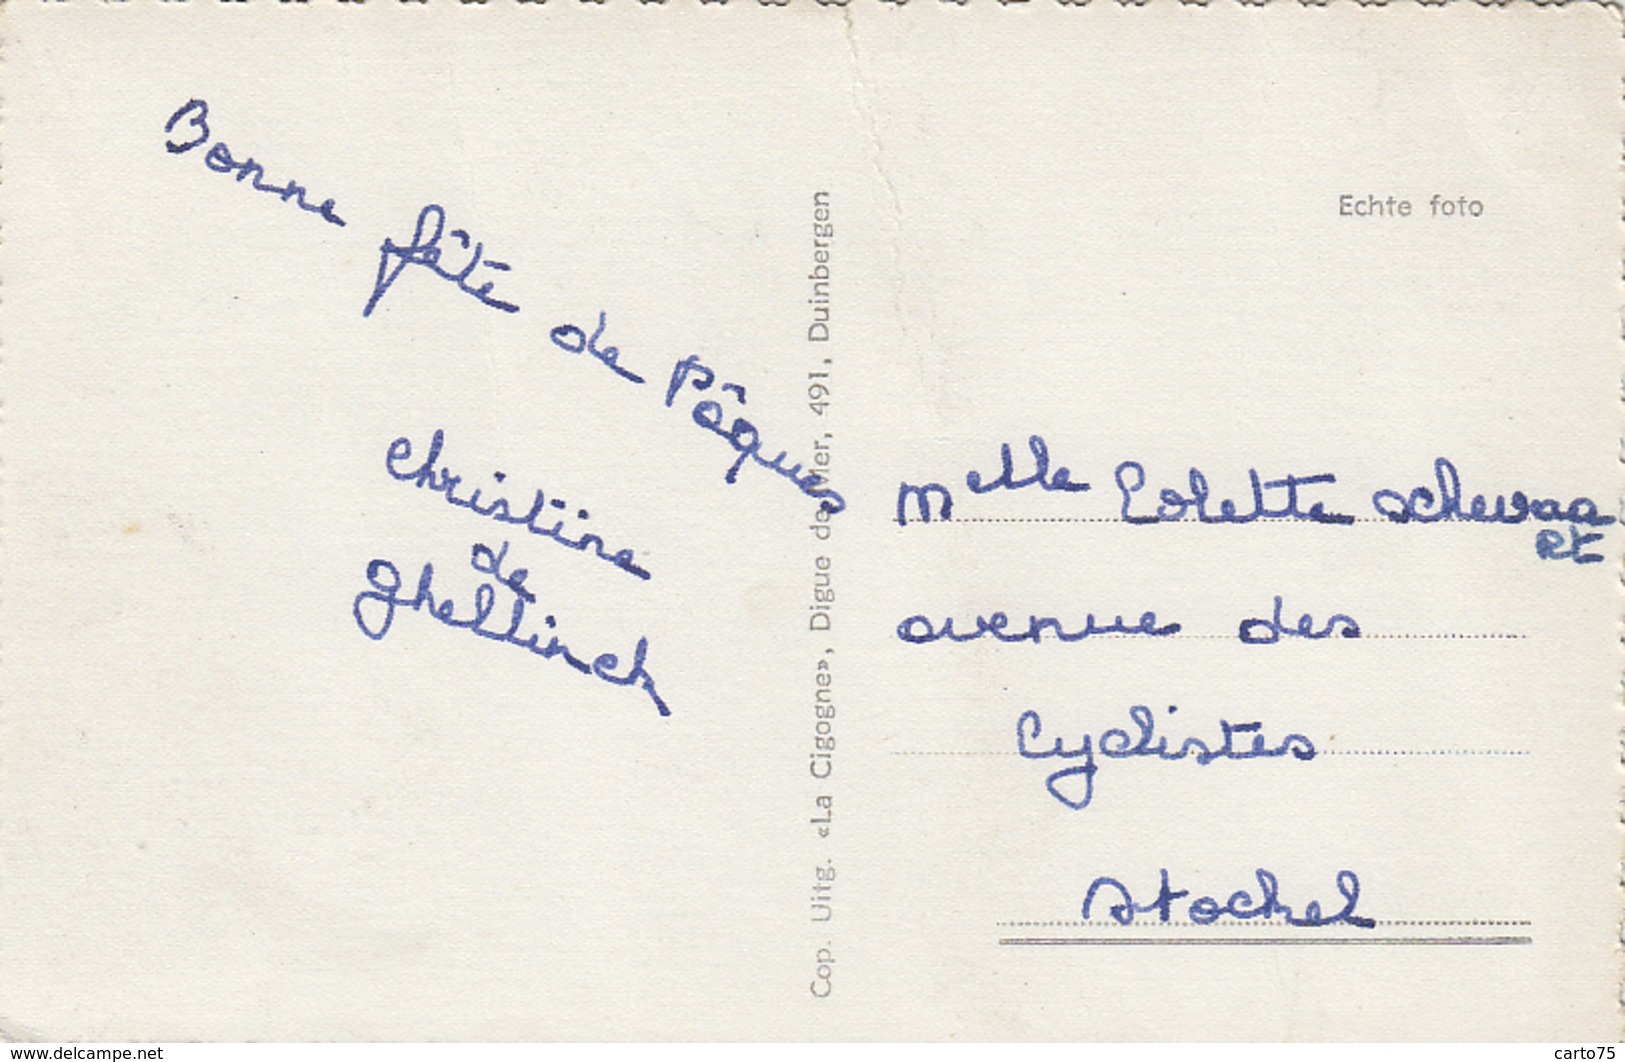 Bonne fête de Pâques
Christine
de
Ghellinck
Cop. Uitg. «La Cigogne», Digue de Mer, 491, Duinbergen
Echte foto
Melle Colette Schevaa
et
avenue des
Cyclistes
Stockel
www.delcampe.net
carto75